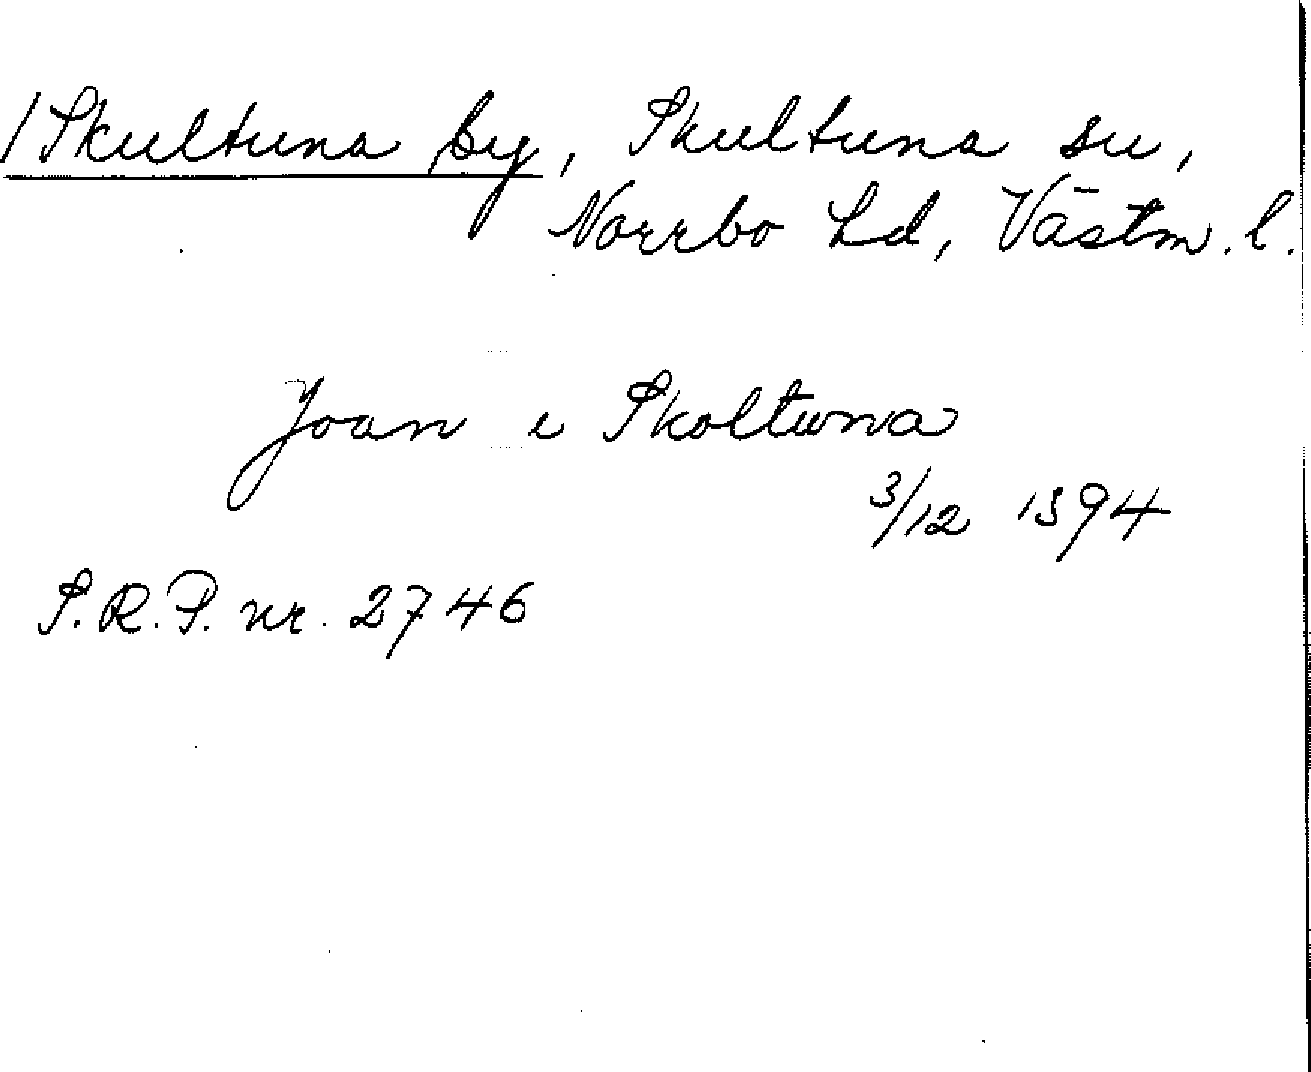 /Skultuna by, Skultuna sn,
Norrbo hd, Västm. l.
Joan i Skoltuna
3/12 1394
S.R.P. nr. 2746